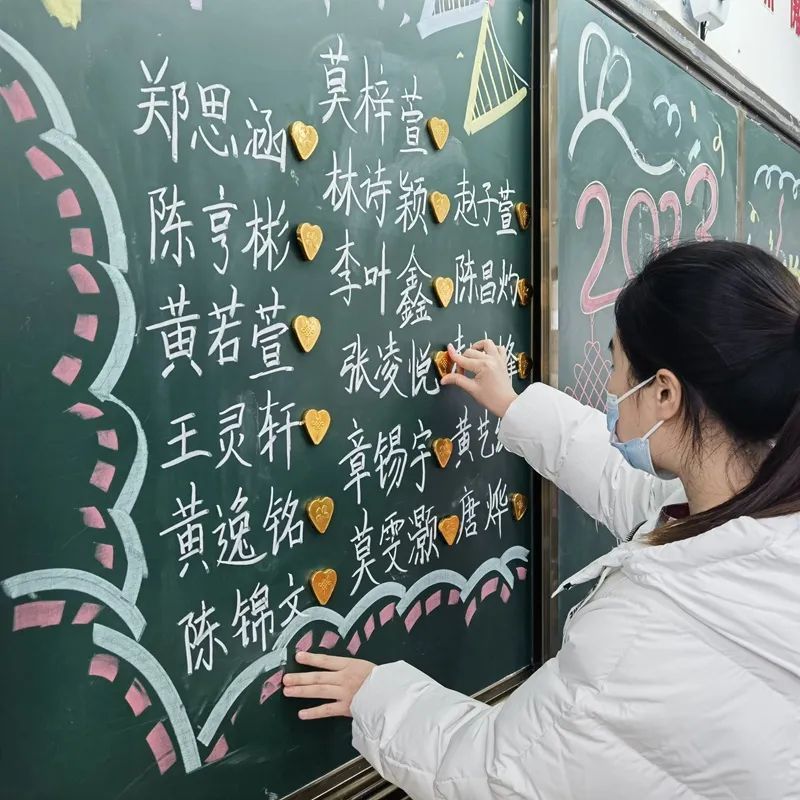 郑思涵
陈亨彬
黄若萱
王灵轩
黄逸铭
陈锦文
莫梓萱
林诗颖
李叶鑫
张凌悦
章锡宇
莫雯灏
赵子萱
陈昌灼
黄艺
唐烨
2023